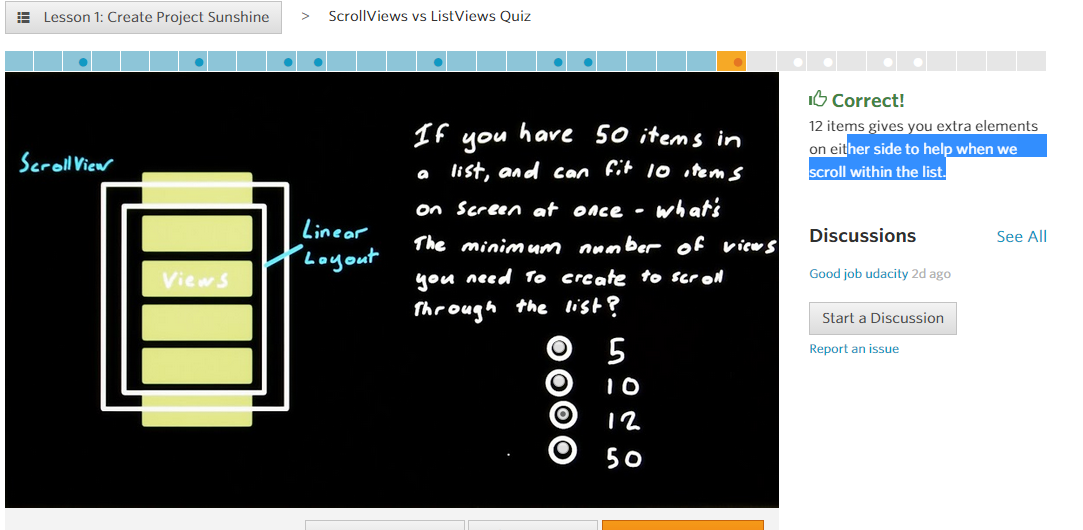 Lesson 1: Create Project Sunshine > ScrollViews vs ListViews Quiz
ScrollView
Linear
Layout
Views
If you have 50 items in
a list, and can fit 10 items
on screen at once - what's
The minimum number of views
you need to create to scroll
Through the list?
5
10
12
50
Correct!
12 items gives you extra elements
on either side to help when we
scroll within the list.
Discussions See All
Good job udacity 2d ago
Start a Discussion
Report an issue